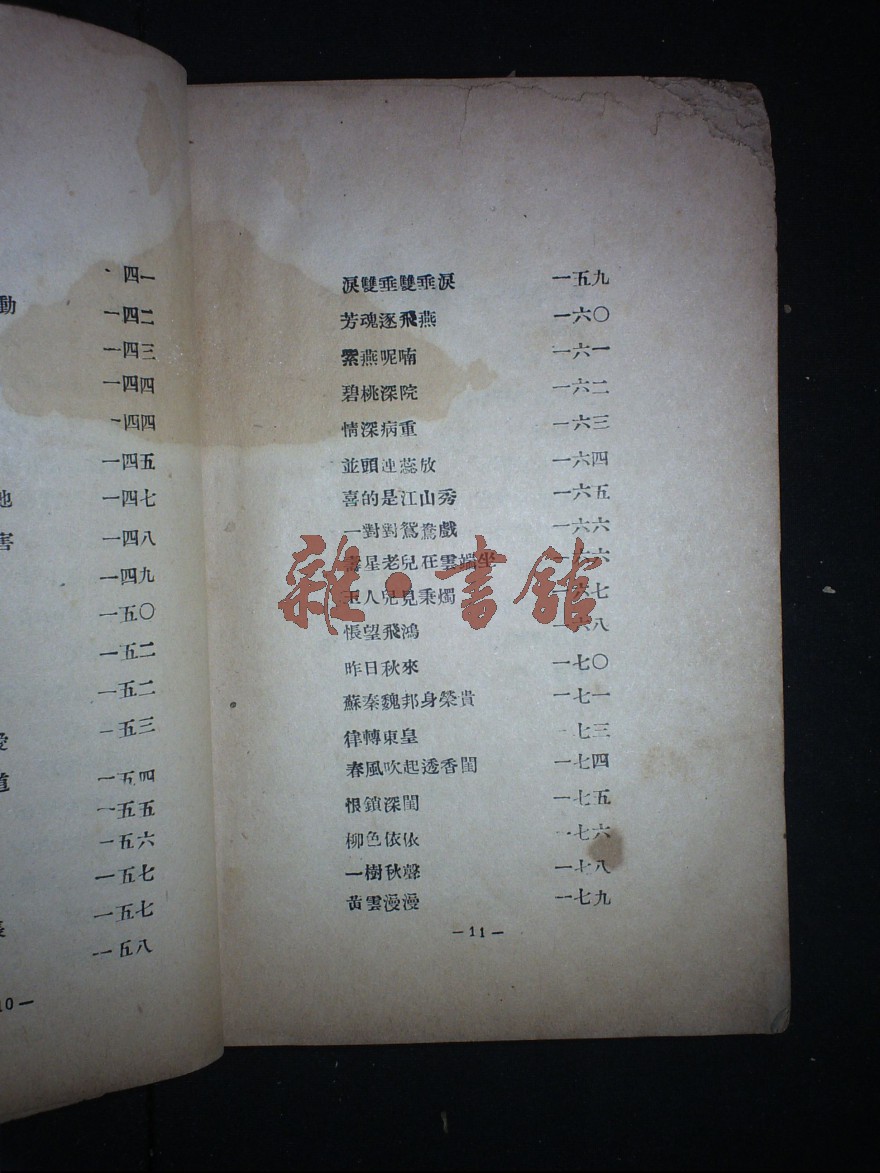 一四一
動 一四二
一四三
一四四
一四四
一四五
一四七
害 一四八
一四九
一五〇
一五二
一五二
一五三
一五四
一五五
一五六
一五七
一五七
一五八
10—
淚雙垂雙垂淚 一五九
芳魂逐飛燕 一六〇
紫燕呢喃 一六一
碧桃深院 一六二
情深病重 一六三
並頭連蕊放 一六四
喜的是江山秀 一六五
一對對鴛鴦戲 一六六
壽星老兒在雲端坐 一六六
玉人兒見秉燭 一六七
悵望飛鴻 一六八
昨日秋來 一七〇
蘇秦魏邦身榮貴 一七一
律轉東皇 一七三
春風吹起透香閨 一七四
恨鎖深閨 一七五
柳色依依 一七六
一樹秋聲 一七八
黃雲漫漫 一七九
—11—
雜·書館